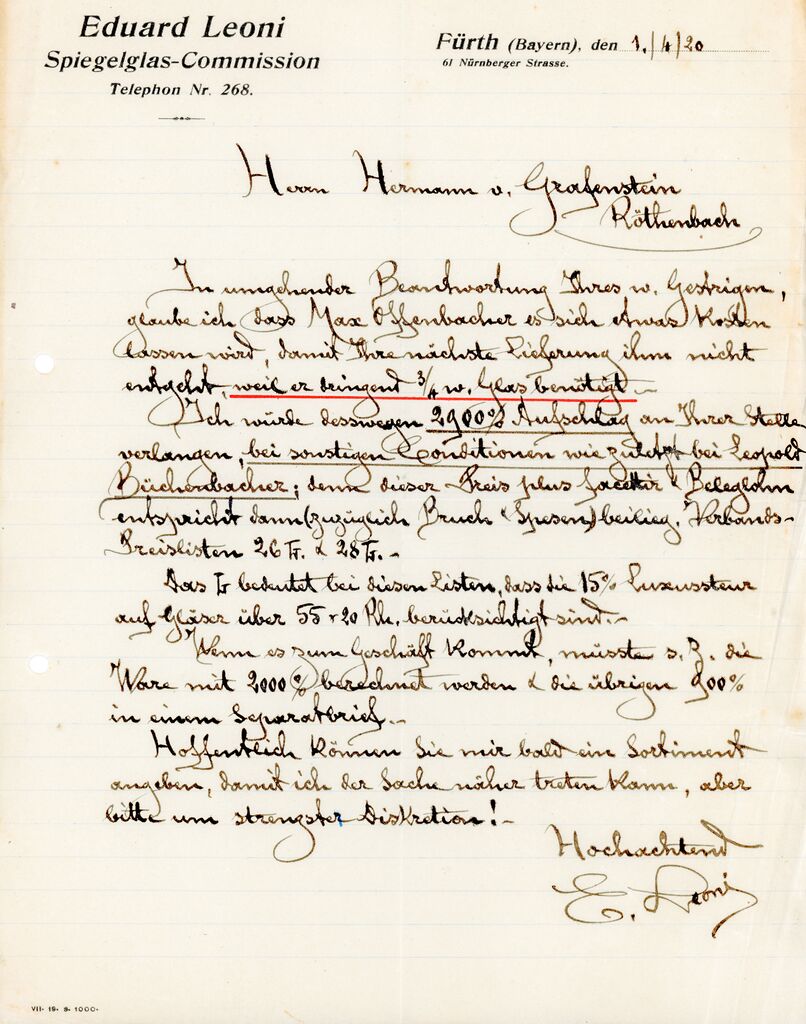 Eduard Leoni
Spiegelglas-Commission
Telephon Nr. 268.
Fürth (Bayern), den 1./4/20
61 Nürnberger Strasse.
Herrn Hermann v. Grafenstein
Röthenbach
In umgehender Beantwortung Ihres w. Gestrigen,
glaube ich dass Max Offenbacher es sich etwas kosten
lassen wird, damit Ihre nächste Lieferung ihm nicht
entgeht, weil er dringend 3/4 w. Glas benötigt.-
Ich würde desswegen 2900% Aufschlag an Ihrer Stelle
verlangen, bei sonstigen Conditionen wie zuletzt bei Leopold
Büchenbacher; denn dieser Preis plus facettir & Beleglohn
entspricht dann (zuzüglich Bruch & Spesen) beilieg. Verbands-
Preislisten 26 & 28
Das bedeutet bei diesen Listen, dass die 15% Luxussteur
auf Gläser über 55 Rh. berücksichtigt sind.-
Wenn es zum Geschäft kommt, müsste s. Z. die
Ware mit 2000% berechnet werden & die übrigen 900%
in einem Separatbrief.-
Hoffentlich können Sie mir bald ein Sortiment
angeben, damit ich der Sache näher treten kann, aber
bitte um strengster Diskretion!-
Hochachtend
E. Leoni
VII. 19. 9. 1000.